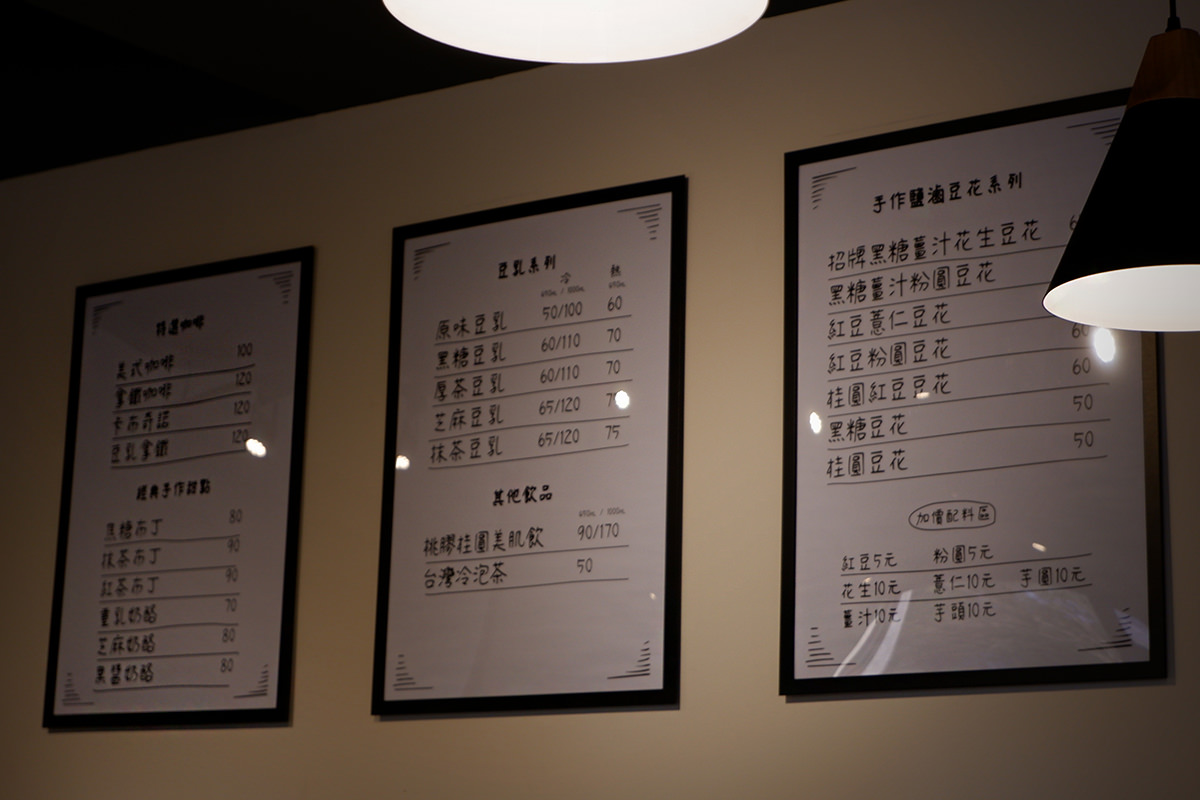 特選咖啡
美式咖啡 100
拿鐵咖啡 120
卡布奇諾 120
豆乳拿鐵 120
經典手作甜點
焦糖布丁 80
抹茶布丁 90
紅茶布丁 90
重乳奶酪 70
芝麻奶酪 80
果醬奶酪 80
豆乳系列
冷 熱
490mL / 1000mL 490mL
原味豆乳 50/100 60
黑糖豆乳 60/110 70
厚茶豆乳 60/110 70
芝麻豆乳 65/120
抹茶豆乳 65/120 75
其他飲品
490mL / 1000mL
桃膠桂圓美肌飲 90/170
台灣冷泡茶 50
手作鹽滷豆花系列
招牌黑糖薑汁花生豆花
黑糖薑汁粉圓豆花
紅豆薏仁豆花
紅豆粉圓豆花 60
桂圓紅豆豆花 60
黑糖豆花 50
桂圓豆花 50
加價配料區
紅豆5元 粉圓5元
花生10元 薏仁10元 芋圓10元
薑汁10元 芋頭10元